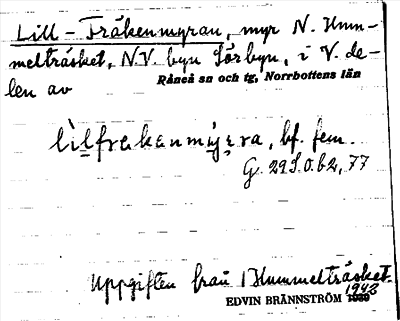 Lill-Fräkenmyran, myr N. Hum-
melträsket, N.V. byn Sörbyn, i V. de-
len av Råneå sn och tg, Norrbottens län
lìlfrækanmy̲ra, bf. fem.
G. 29 S.O. b2, 77
Uppgiften från Hummelträsket.
EDVIN BRÄNNSTRÖM 1943